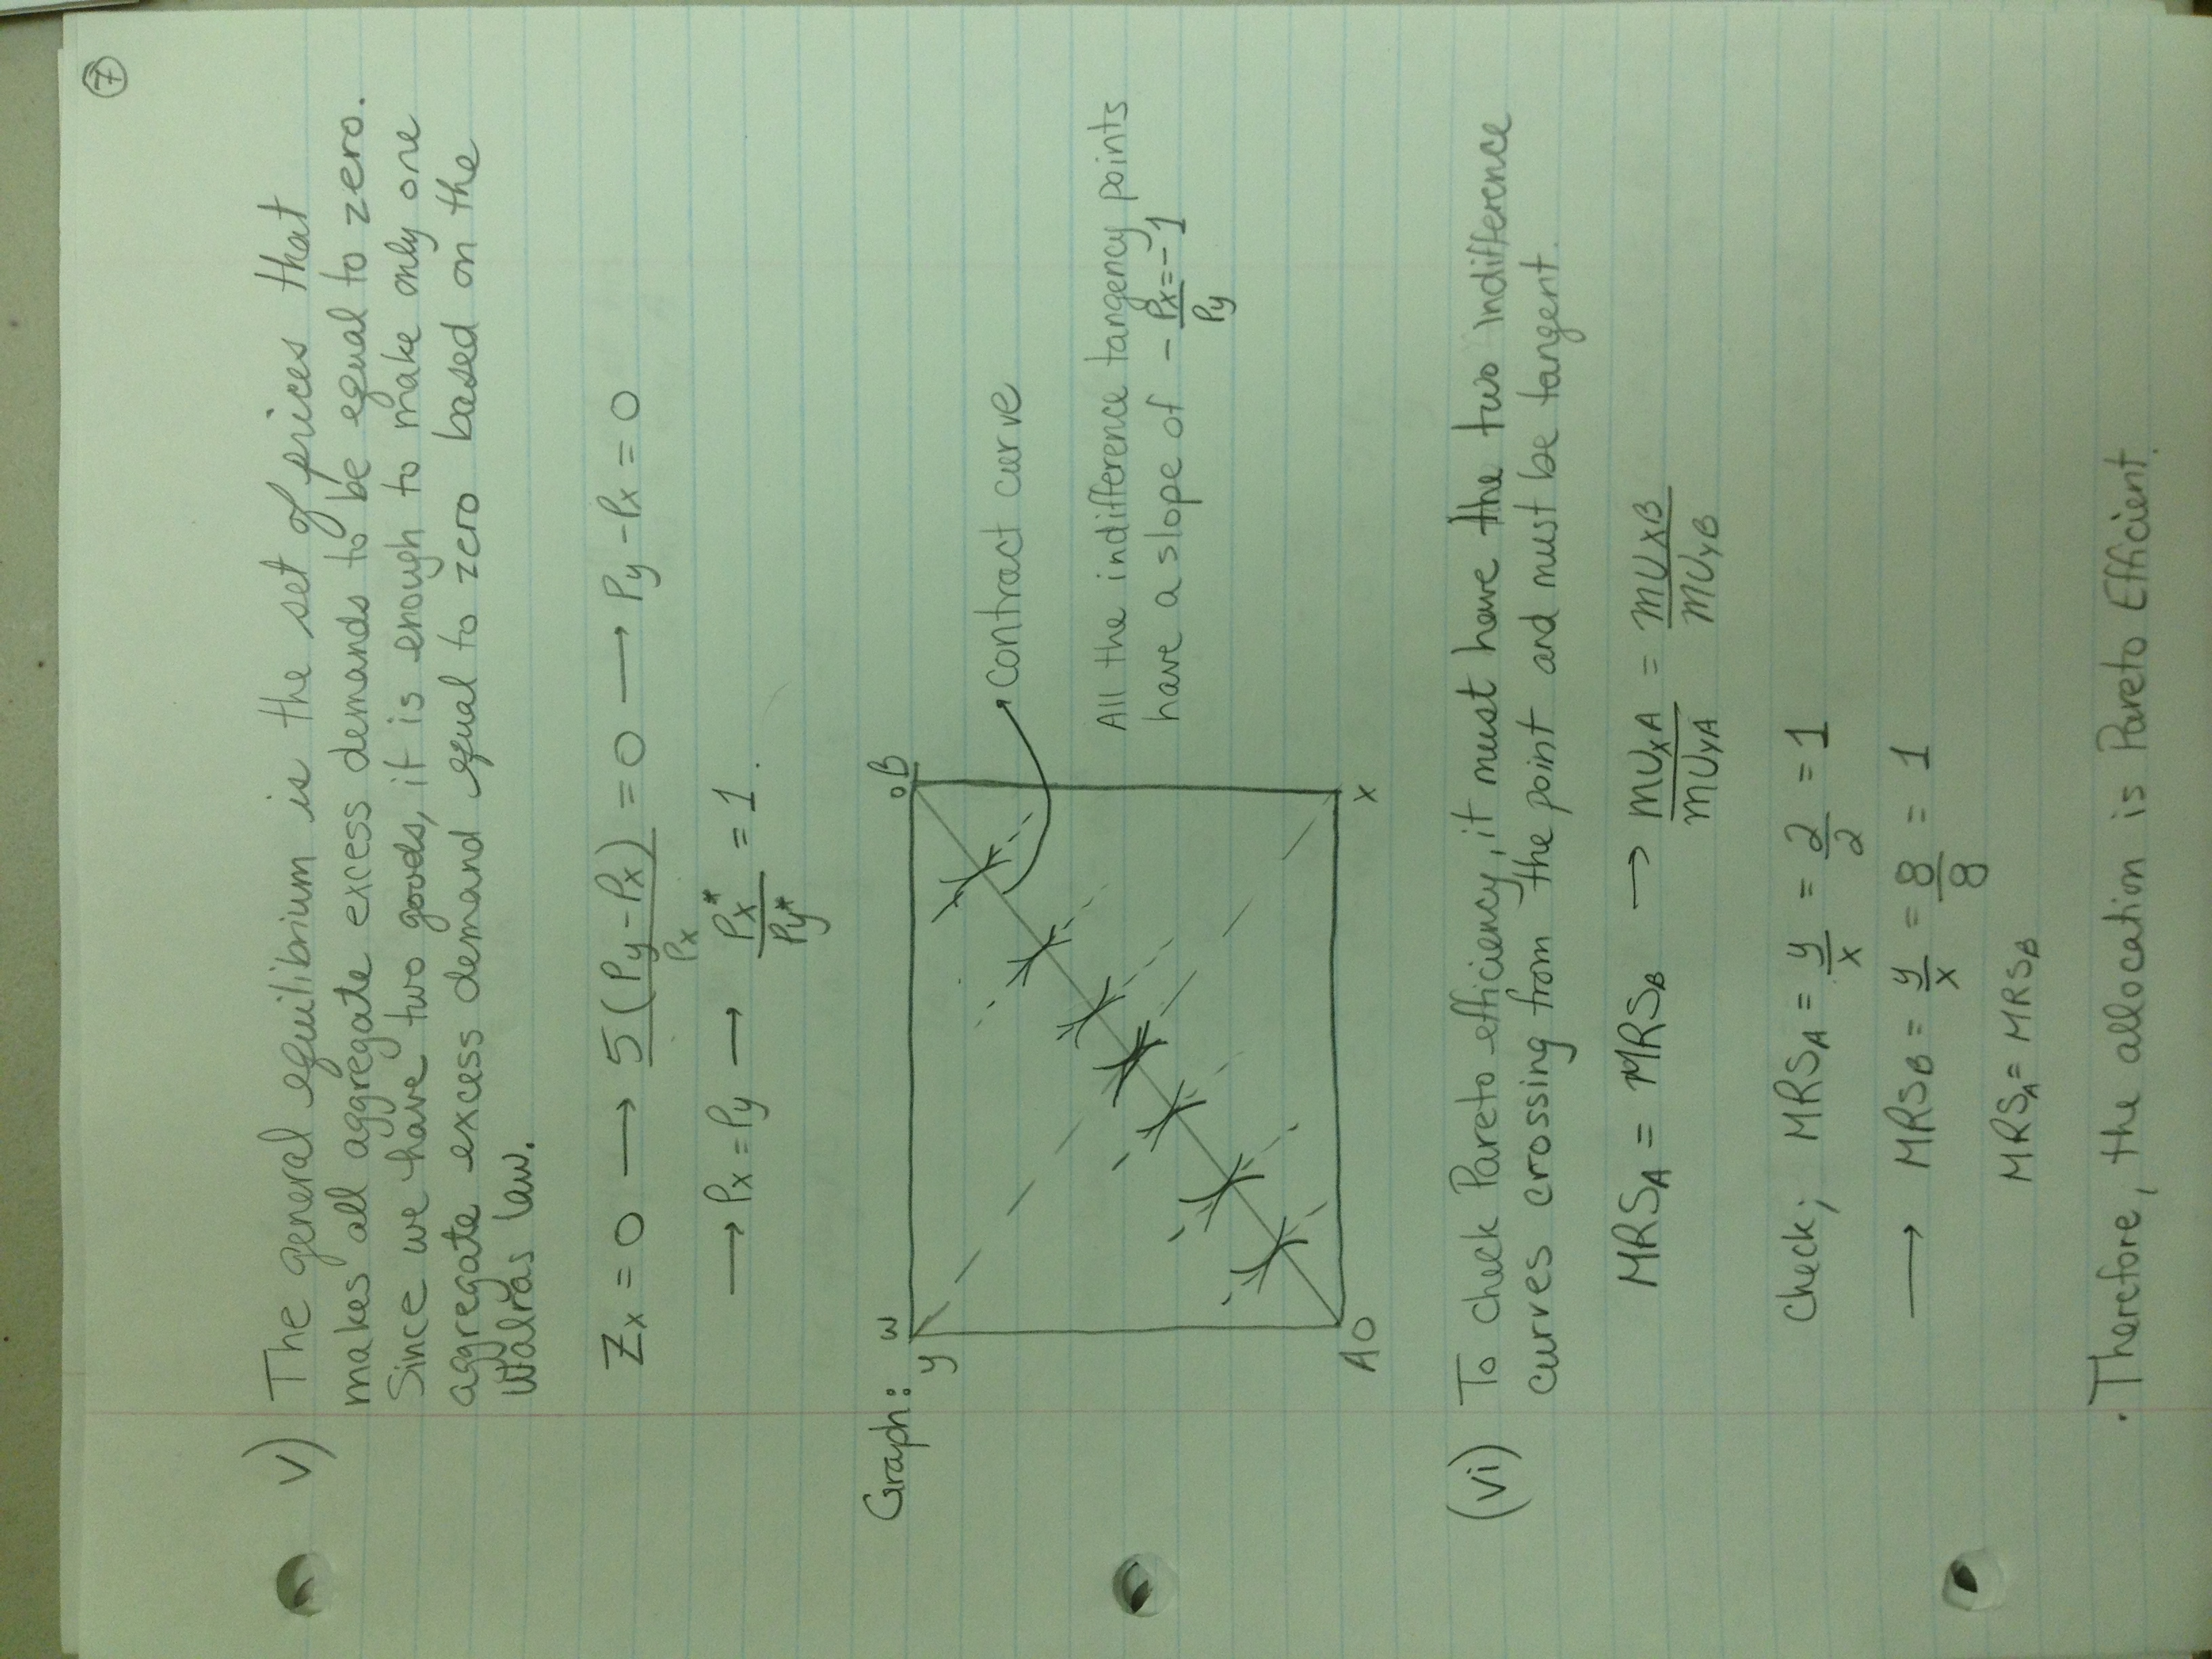 7
v) The general equilibrium is the set of prices that
makes all aggregate excess demands to be equal to zero.
Since we have two goods, it is enough to make only one
aggregate excess demand equal to zero based on the
Walras law.
Zx = 0 → 5(Py - Px)/Px = 0 → Py - Px = 0
→ Px = Py → Px*/Py* = 1.
Graph:
W
y
OB
contract curve
All the indifference tangency points
have a slope of - Px/Py = - 1
AO
x
(vi) To check Pareto efficiency, it must have the two indifference
curves crossing from the point and must be tangent.
MRSA = MRSB → MUxA/MUyA = MUxB/MUyB
Check; MRSA = y/x = 2/2 = 1
→ MRSB = y/x = 8/8 = 1
MRSA = MRSB
. Therefore, the allocation is Pareto Efficient.